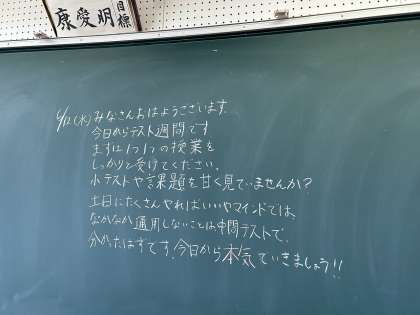 目標
康愛明
6/12(水)みなさんおはようございます。
今日からテスト週間です
まずは1つ1つの授業を
しっかりと受けてください。
小テストや課題を甘く見ていませんか？
土日にたくさんやればいいやマインドでは、
なかなか通用しないことは中間テストで、
分かったはずです。今日から本気でいきましょう!!